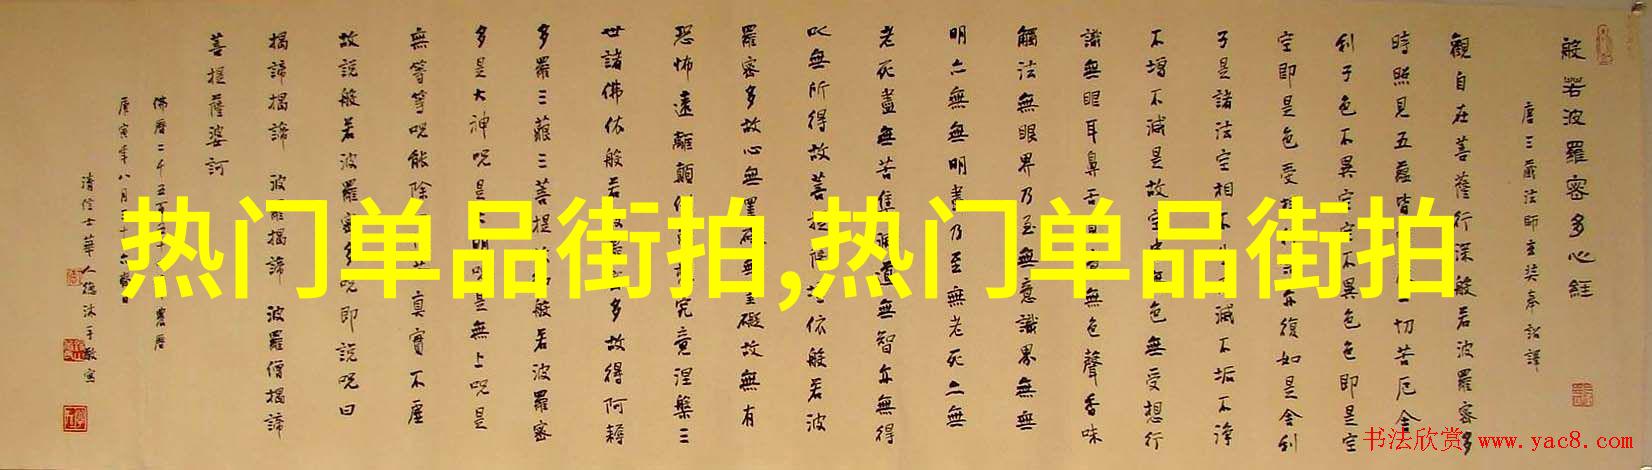 般若波羅密多心經
唐三藏法師玄奘奉詔譯
觀自在菩薩行深般若波羅密多
時照見五蘊皆一切苦厄舍
利子色不異空空不異色色即是空
空即是色受想亦復如是舍利
子是諸法空相不減不垢不淨
不增不減是故空中無色無受想行
識無眼耳鼻舌無色聲香味
觸法無眼界乃至無意識界無無
明亦無無明盡乃至無老死亦無
老死盡無苦集滅道無智亦無得
以無所得故菩提薩依般若波
羅密多故心無罣礙無罣礙故無有
恐怖遠離顛倒究竟涅槃三
世諸佛依般若多故得阿耨
多羅三藐三菩提般若波羅密
多是大神呪是大明呪是無上呪是
無等等呪能除真實不虛
故說般若波羅密多呪即說呪曰
揭諦揭諦 波羅揭諦 波羅僧揭諦
菩提薩婆訶
佛曆二千五百農曆
庚寅年八月
清信士華人德沐手敬寫
热门单品街拍,热门单品街拍
书法欣赏 www.yac8.com